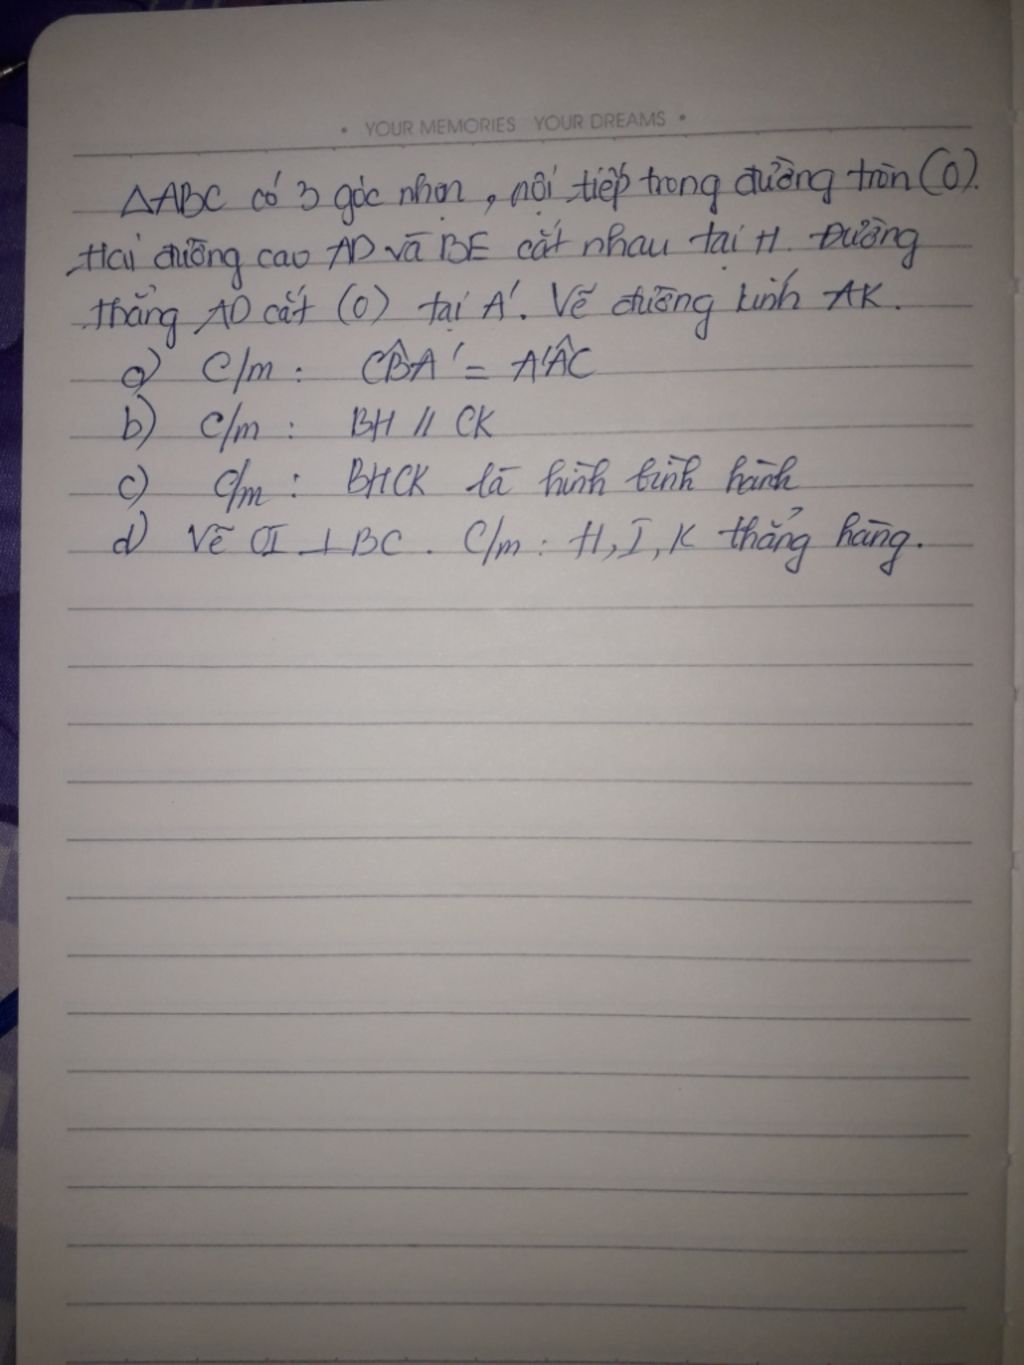 • YOUR MEMORIES YOUR DREAMS •
△ABC có 3 góc nhọn, nội tiếp trong đường tròn (O).
Hai đường cao AD và BE cắt nhau tại H. Đường
thẳng AD cắt (O) tại A'. Vẽ đường kính AK.
a) C/m : CB̂A' = A'ÂC
b) C/m : BH // CK
c) C/m : BHCK là hình bình hành
d) Vẽ OI ⊥ BC. C/m : H, I, K thẳng hàng.